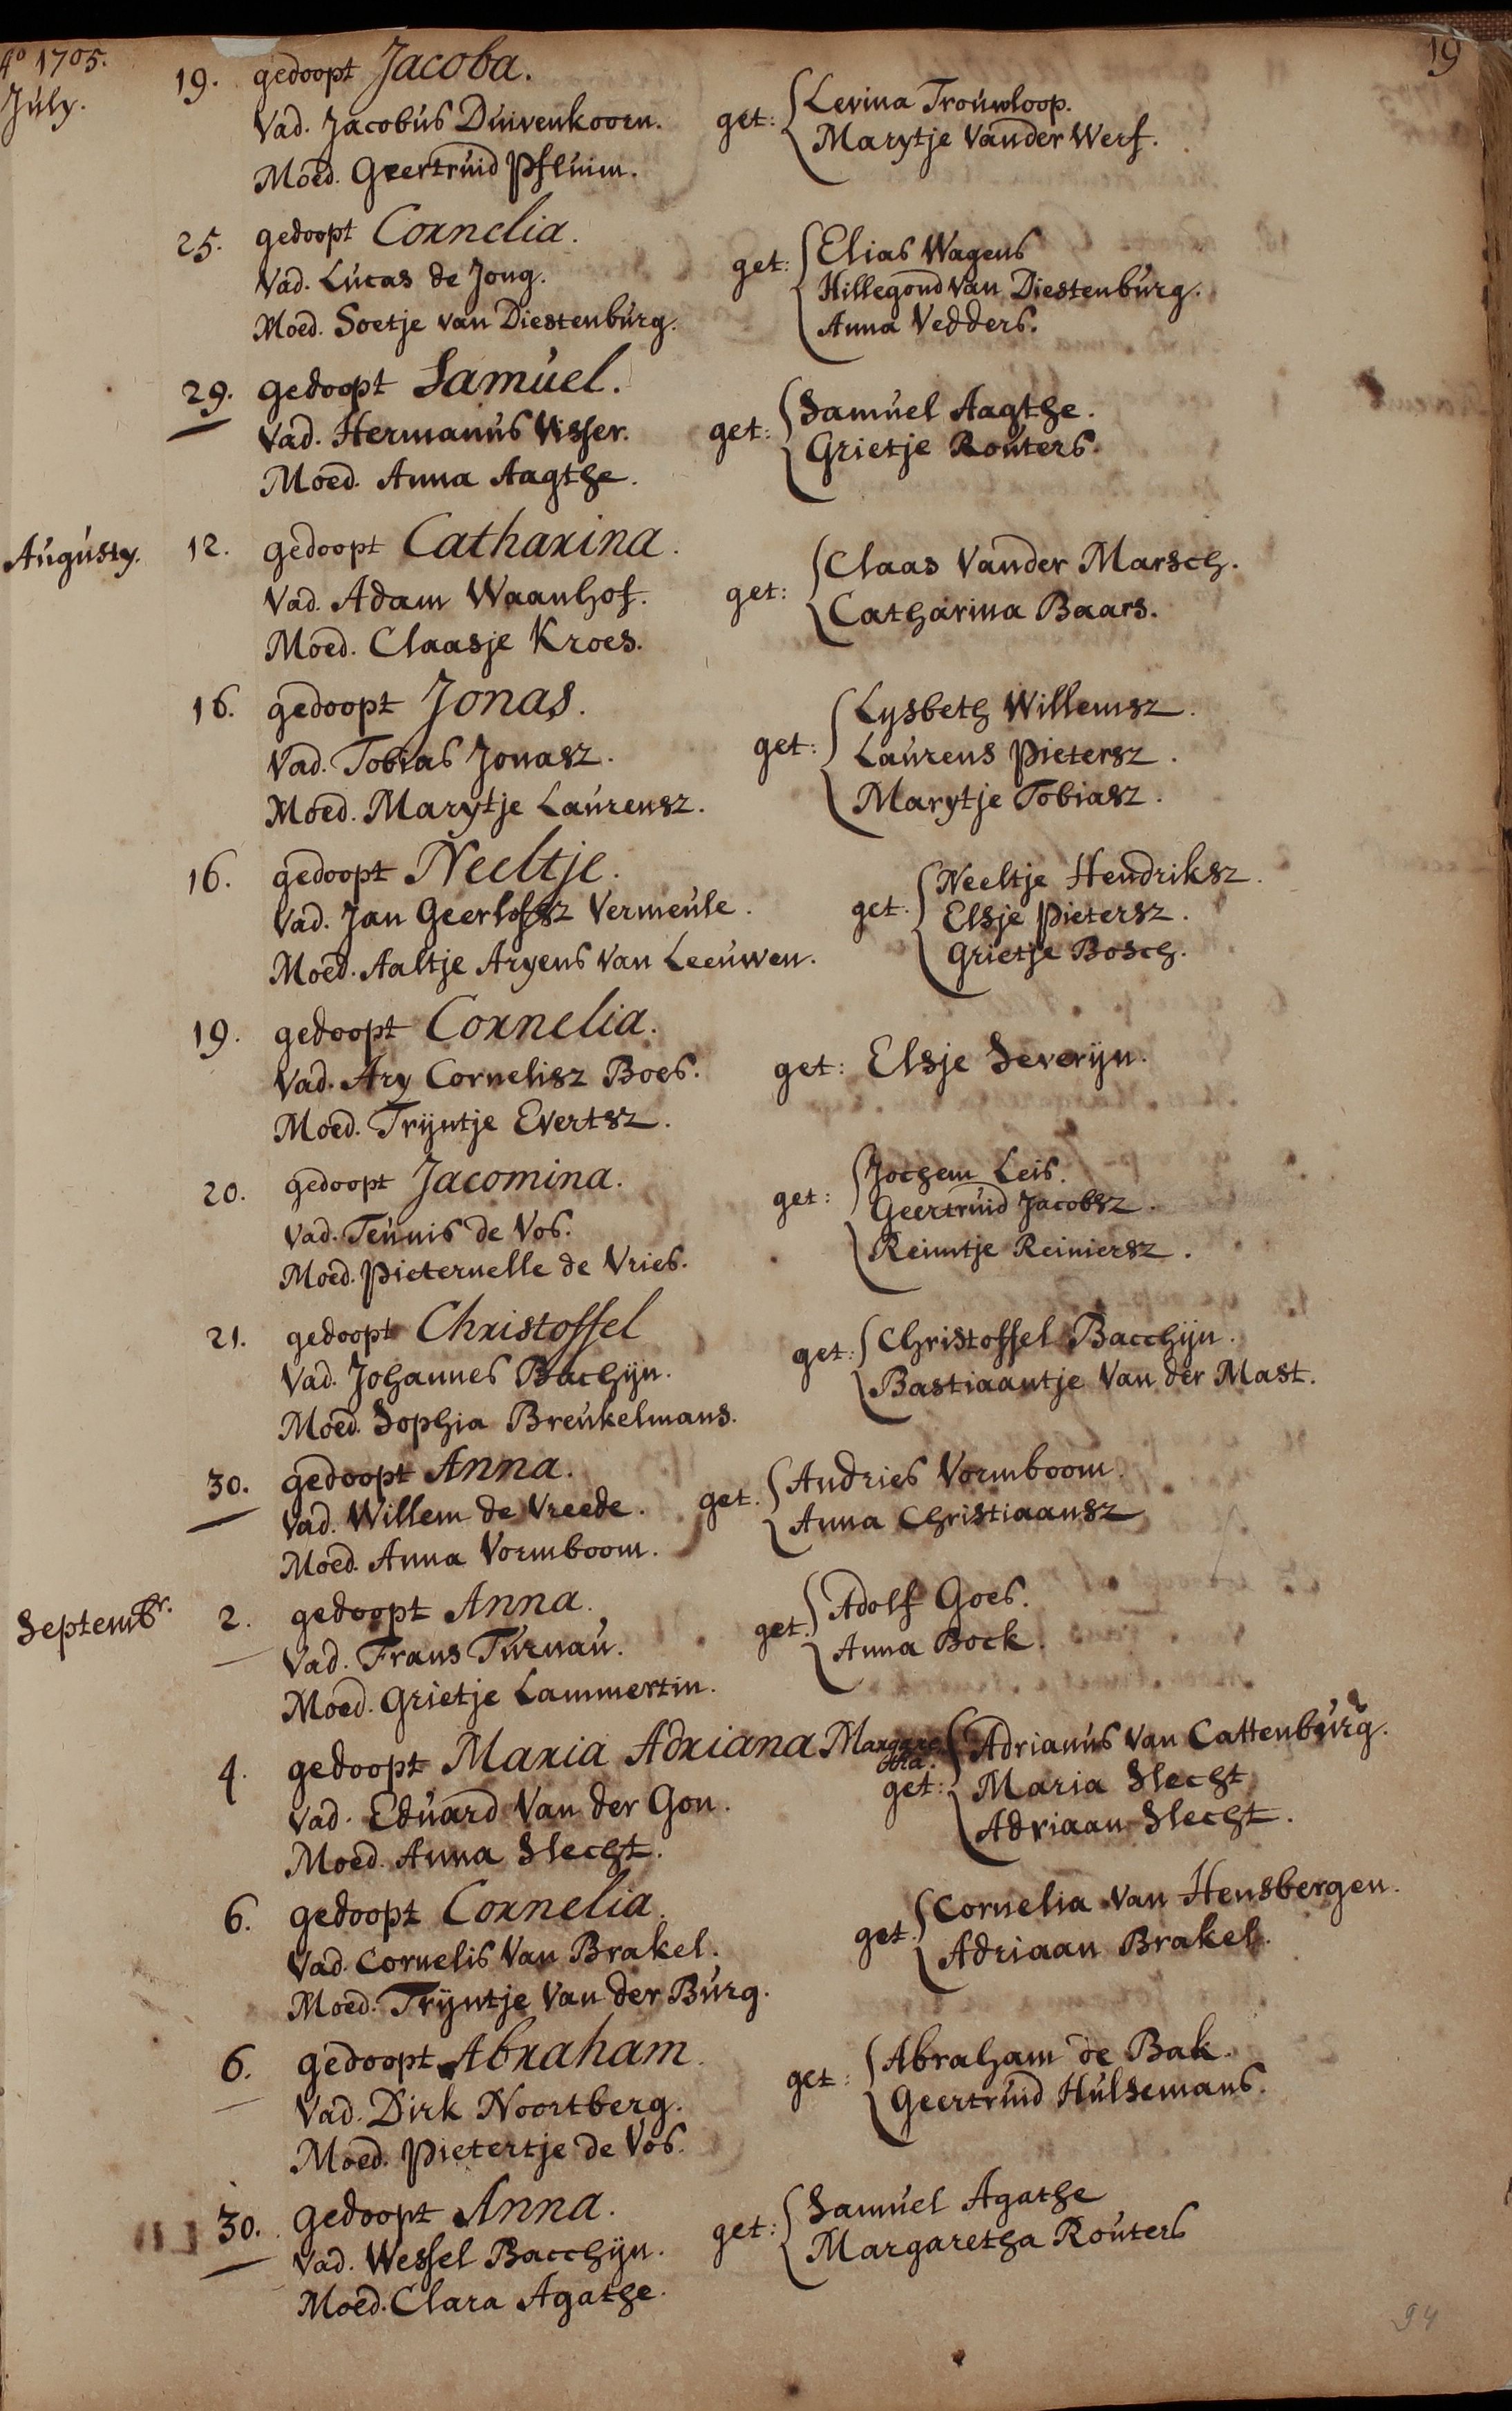 Ao 1705.
19
July.
19. gedoopt Jacoba.
Vad. Jacobus Duivenkoorn.
Moed. Geertruid Pfluim.
get: Levina Trouwloop.
Marytje Vander Werf.
25. gedoopt Cornelia.
Vad. Lucas de Jong.
Moed. Soetje van Diestenburg.
get: Elias Wagens
Hillegond van Diestenburg.
Anna Vedders.
29. gedoopt Samuel.
Vad. Hermanus Visser.
Moed. Anna Aagthe.
get: Samuel Aagthe.
Grietje Routers.
Augusty.
12. gedoopt Catharina.
Vad. Adam Waanhof.
Moed. Claasje Kroes.
get: Claas Vander Marsch.
Catharina Baars.
16. gedoopt Jonas.
Vad. Tobias Jonasz.
Moed. Marytje Laurensz.
get: Lysbeth Willemsz.
Laurens Pietersz.
Marytje Tobiasz.
16. gedoopt Neeltje.
Vad. Jan Geerlofsz Vermeule.
Moed. Aaltje Aryens van Leeuwen.
get. Neeltje Hendriksz.
Elsje Pietersz.
Grietje Bosch.
19. gedoopt Cornelia.
Vad. Ary Cornelisz Boes.
Moed. Trijntje Evertsz.
get: Elsje Severijn.
20. gedoopt Jacomina.
Vad. Teunis de Vos.
Moed. Pieternelle de Vries.
get: Jochem Leis.
Geertruid Jacobsz.
Reimtje Reiniersz.
21. gedoopt Christoffel
Vad. Johannes Bachijn.
Moed. Sophia Breukelmans.
get: Christoffel Bacchijn.
Bastiaantje Van der Mast.
30. gedoopt Anna.
Vad. Willem de Vreede.
Moed. Anna Vormboom.
get. Andries Vormboom.
Anna Christiaansz
Septembr.
2. gedoopt Anna.
Vad. Frans Turnau.
Moed. Grietje Lammertin.
get. Adolf Goes.
Anna Bock.
4. gedoopt Maria Adriana Margare
tha.
Vad. Eduard Van der Gon.
Moed. Anna Slecht.
get: Adrianus Van Cattenburg.
Maria Slecht
Adriaan Slecht.
6. gedoopt Cornelia.
Vad. Cornelis Van Brakel.
Moed. Trijntje Van der Burg.
get. Cornelia Van Hensbergen.
Adriaan Brakel.
6. gedoopt Abraham.
Vad. Dirk Noortberg.
Moed. Pietertje de Vos.
get: Abraham de Bak.
Geertruid Hulsemans.
30. gedoopt Anna.
Vad. Wessel Bacchijn.
Moed. Clara Agathe.
get: Samuel Agathe
Margaretha Routers
94